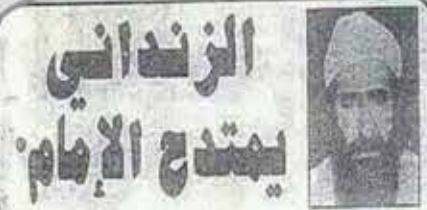 الزنداني
يمتدح الإمام